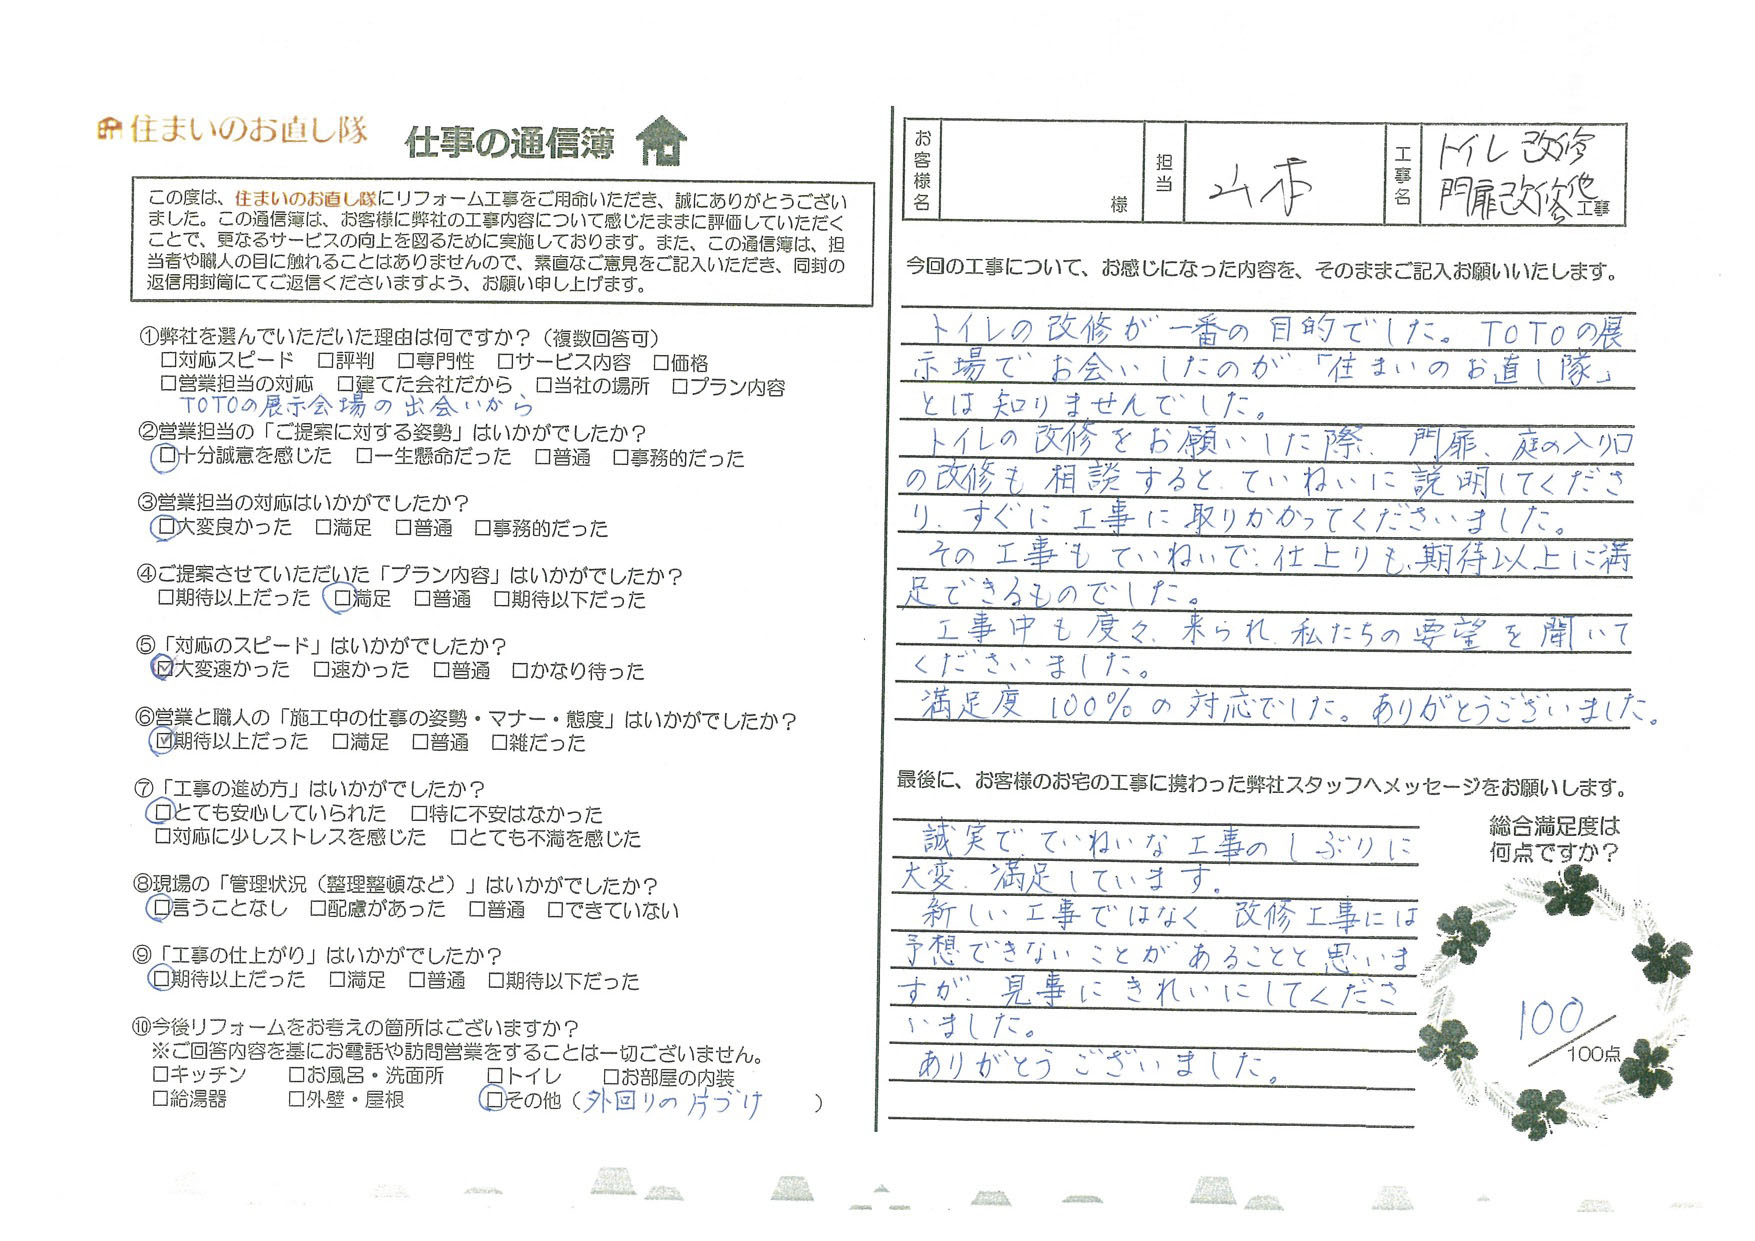 住まいのお直し隊
仕事の通信簿
この度は、住まいのお直し隊にリフォーム工事をご用命いただき、誠にありがとうござい
ました。この通信簿は、お客様に弊社の工事内容について感じたままに評価していただく
ことで、更なるサービスの向上を図るために実施しております。また、この通信簿は、担
当者や職人の目に触れることはありませんので、素直なご意見をご記入いただき、同封の
返信用封筒にてご返信くださいますよう、お願い申し上げます。
①弊社を選んでいただいた理由は何ですか？（複数回答可）
□対応スピード □評判 □専門性 □サービス内容 □価格
□営業担当の対応 □建てた会社だから □当社の場所 □プラン内容
TOTOの展示会場の出会いから
②営業担当の「ご提案に対する姿勢」はいかがでしたか？
□十分誠意を感じた □一生懸命だった □普通 □事務的だった
③営業担当の対応はいかがでしたか？
□大変良かった □満足 □普通 □事務的だった
④ご提案させていただいた「プラン内容」はいかがでしたか？
□期待以上だった □満足 □普通 □期待以下だった
⑤「対応のスピード」はいかがでしたか？
☑大変速かった □速かった □普通 □かなり待った
⑥営業と職人の「施工中の仕事の姿勢・マナー・態度」はいかがでしたか？
☑期待以上だった □満足 □普通 □雑だった
⑦「工事の進め方」はいかがでしたか？
□とても安心していられた □特に不安はなかった
□対応に少しストレスを感じた □とても不満を感じた
⑧現場の「管理状況（整理整頓など）」はいかがでしたか？
□言うことなし □配慮があった □普通 □できていない
⑨「工事の仕上がり」はいかがでしたか？
□期待以上だった □満足 □普通 □期待以下だった
⑩今後リフォームをお考えの箇所はございますか？
※ご回答内容を基にお電話や訪問営業をすることは一切ございません。
□キッチン □お風呂・洗面所 □トイレ □お部屋の内装
□給湯器 □外壁・屋根 □その他（外回りの片づけ ）
お客様名 様 担当 山本 工事名 トイレ改修
門扉改修他工事
今回の工事について、お感じになった内容を、そのままご記入お願いいたします。
トイレの改修が一番の目的でした。TOTOの展
示場でお会いしたのが「住まいのお直し隊」
とは知りませんでした。
トイレの改修をお願いした際、門扉、庭の入り口
の改修も相談すると、ていねいに説明してくださ
り、すぐに工事に取りかかってくださいました。
その工事もていねいで、仕上りも、期待以上に満
足できるものでした。
工事中も度々、来られ、私たちの要望を聞いて
くださいました。
満足度100%の対応でした。ありがとうございました。
最後に、お客様のお宅の工事に携わった弊社スタッフへメッセージをお願いします。
誠実で、ていねいな工事のしぶりに
大変、満足しています。
新しい工事ではなく、改修工事には
予想できないことがあることと思いま
すが、見事にきれいにしてくださ
いました。
ありがとうございました。
総合満足度は
何点ですか？
100
100点